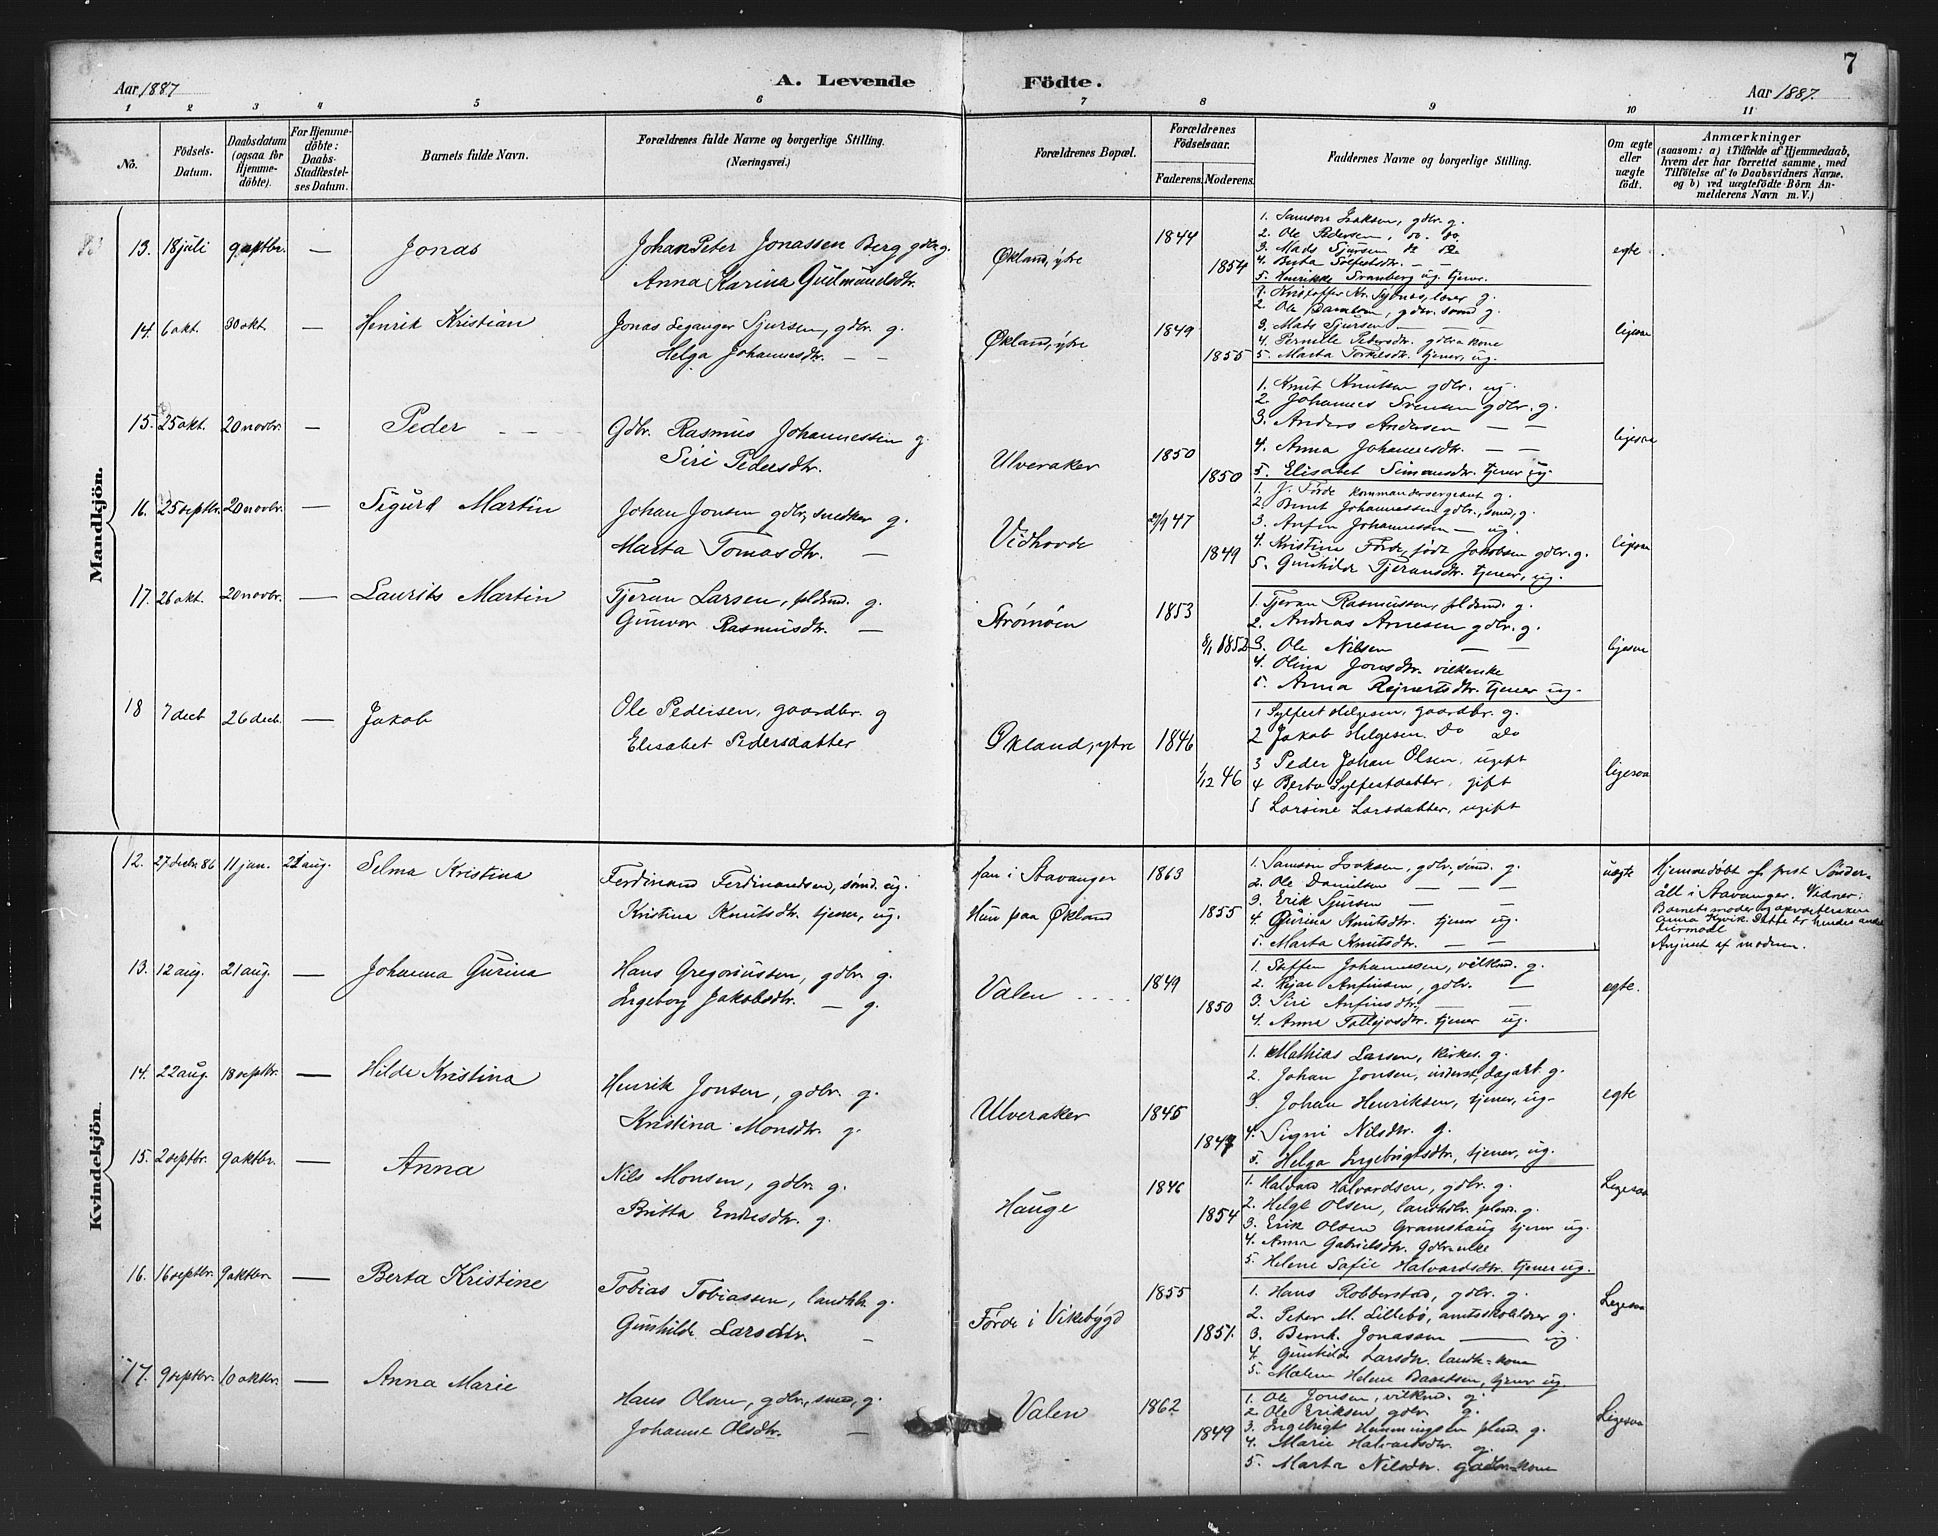 7
Aar 1887
A. Levende Födte.
Aar 1887.
1 2 3 4 5 6 7 8 9 10 11
No.
Födsels-Datum.
Daabsdatum (ogsaa for Hjemme-döbte).
For Hjemme-döbte: Daabs-Stadfæstel-ses Datum.
Barnets fulde Navn.
Forældrenes fulde Navne og borgerlige Stilling.
(Næringsvei.)
Forældrenes Bopæl.
Forældrenes Födselsaar.
Faderens. Moderens.
Faddernes Navne og borgerlige Stilling.
Om ægte eller uægte födt.
Anmærkninger
(saasom: a) i Tilfælde af Hjemmedaab, hvem der har forrettet samme, med Tilföielse af to Daabsvidners Navne. og b) ved uægtefödte Börn An-melderens Navn m. V.)
Mandkjön.
13. 18 juli 9 oktbr. — Jonas
Johan Peter Jonassen Berg gdbr. g.
Anna Karina Gudmundsdtr.
Økland, ytre 1844 1854
1. Samson Isaksen, gdbr. g.
2. Ole Pedersen, do. do
3. Mads Sjursen do do
4. Berta Solfestdtr. — —
5. Henrikke Svanberg ug. tjener.
egte
14. 6 okt. 30 okt. — Henrik Kristian
Jonas Leganger Sjursen, gdbr. g.
Helga Johannesdtr. — —
Økland, ytre 1849 1855
1. Kristoffer Kr. Sydnes, lærer g.
2. Ole Danielsen, gdbr. sømd g.
3. Mads Sjursen — — —
4. Pernille Pedersdtr. gdbr.a kone
5. Marta Torkelsdtr. tjener, ug.
ligesaa
15. 25 okt. 20 novbr. — Peder
Gdbr. Rasmus Johannessen g.
Siri Pedersdtr.
Ulveraker 1850 1850
1. Knut Knutsen gdbr. ug.
2. Johannes Svensen gdbr. g.
3. Anders Andersen — —
4. Anna Johannesdtr. — —
5. Elisabet Simonsdtr. tjener ug.
ligesaa
16. 25 septbr. 20 novbr. — Sigurd Martin
Johan Jonsen gdbr., snedker g.
Marta Tomasdtr. —
Vidhovde 27/9 47 1849
1. J. Førde kommandersergeant g.
2. Bernt Johannessen gdbr., smed, g.
3. Anfin Johannessen — ug.
4. Kristina Førde, født Jakobsen gdbr. g.
5. Gunhilde Tjeransdtr. tjener, ug.
ligesaa
17. 26 okt. 20 novbr. — Laurits Martin
Tjeran Larsen, pldsmd. g.
Gunvor Rasmusdtr. —
Strømøen 1853 8/1 1852
1. Tjeran Rasmussen, pldsmd. g.
2. Andreas Arnesen gdbr. g.
3. Ole Nilsen — —
4. Olina Jonsdtr. vilkenke
5. Anna Rejnertsdtr. tjener ug.
ligesaa
18 7 decb 26 decb. — Jakob
Ole Pedersen, gaardbr. g
Elisabet Pedersdatter
Økland, ytre 1846 1/12 46
1 Sylfest Helgesen, gaardbr. g.
2 Jakob Helgesen Do Do
3 Peder Johan Olsen, ugift
4 Berta Sylfestdatter, gift
5 Larsine Larsdatter, ugift
ligesaa
Kvindekjön.
12. 27 decbr 86 11 jan. 21 aug. Selma Kristina
Ferdinand Ferdinandsen, sømd. ug.
Kristina Knutsdtr. tjener, ug.
Han i Stavanger
Hun paa Økland
1863 1855
1. Samson Isaksen, gdbr., sømd. g.
2. Ole Danielsen — — —
3. Erik Sjursen — —
4. Gurina Knutsdtr. tjener ug.
5. Marta Knutsdtr. — —
uegte
Hjemmedøbt af prest Sønder-
ått i Stavanger. Vidner:
Barnets moder og opvarterske
Anna Kvik. Dette er hendes andet
leiermaal
Angivet af moderen.
13. 12 aug. 21 aug. — Johanna Gurina
Hans Gregoriussen, gdbr. g.
Ingeborg Jakobsdtr. — g.
Valen 1849 1850
1. Steffen Johannessen, vilkmd. g.
2. Rejar Anfinsen, gdbr. —
3. Siri Anfinsdtr., — —
4. Anna Tollejvsdtr. tjener ug.
egte.
14. 22 aug. 18 septbr. — Hilde Kristina
Henrik Jonsen, gdbr. g.
Kristina Monsdtr. g.
Ulveraker 1845 1847
1. Mathias Larsen, kirkes. g.
2. Johan Jonsen, inderst, dagarb. g.
3. Johan Henriksen, tjener, ug.
4. Signi Nilsdtr. g.
5. Helga Ingebrigtsdtr., tjener, ug.
egte
15. 2 septbr. 9 oktbr. — Anna
Nils Monsen, gdbr. g.
Britta Endresdtr. g.
Hauge 1846 1854
1. Halvard Halvardsen, gdbr. g.
2. Helge Olsen, landhdlr. g.
3. Erik Olsen Gramshaug tjener ug.
4. Anna Gabrielsdtr. Gdbrenke
5. Helene Sofie Halvardsdtr. tjener ug.
Ligesaa
16. 16 septbr. 9 oktbr. — Berta Kristine
Tobias Tobiassen, landhb. g.
Gunhilde Larsdtr. —
Førde i Vikebygd 1855 1851.
1. Hans Robberstad, gdbr. g.
2. Peter M. Lillebø, amtsskolelærer g.
3. Bernh. Jonassen — ug.
4. Gunhilde Larsdtr. landh=kone
5. Malene Helene Baartsen, tjener ug
Ligesaa
17. 9 septbr. 10 oktbr. — Anna Marie
Hans Olsen, gdbr., smed, g.
Johanne Olsdtr. —
Valen 1862 1849
1. Ole Jonsen, vilkmd. g.
2 Ole Eriksen gdbr. g.
3. Ingebrigt Hemmingsen plsmd. g.
4. Marie Halvardsdtr. g.
5. Marta Nilsdtr. gaardm.kone
Ligesaa